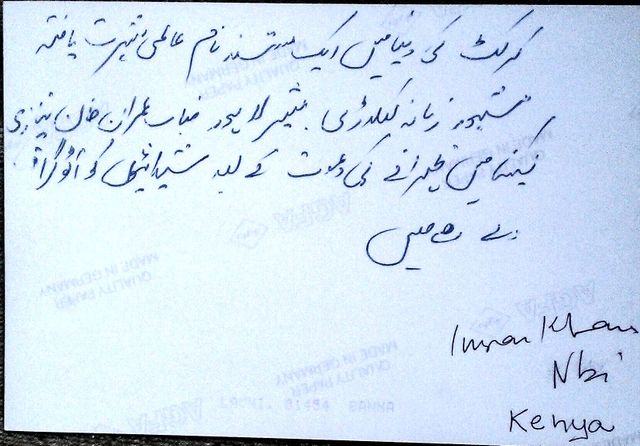 کرکٹ کی دنیا میں ایک مستند نام عالمی شہرت یافتہ
مشہور زمانہ کھلاڑی شیر لاہور جناب عمران خان نیازی
کینیا میں ظہرانے کی دعوت کے بعد شیدائیوں کو آٹوگراف
دے رہے ہیں
Imran Khan
Nbi
Kenya
MADE IN GERMANY
QUALITY PAPER